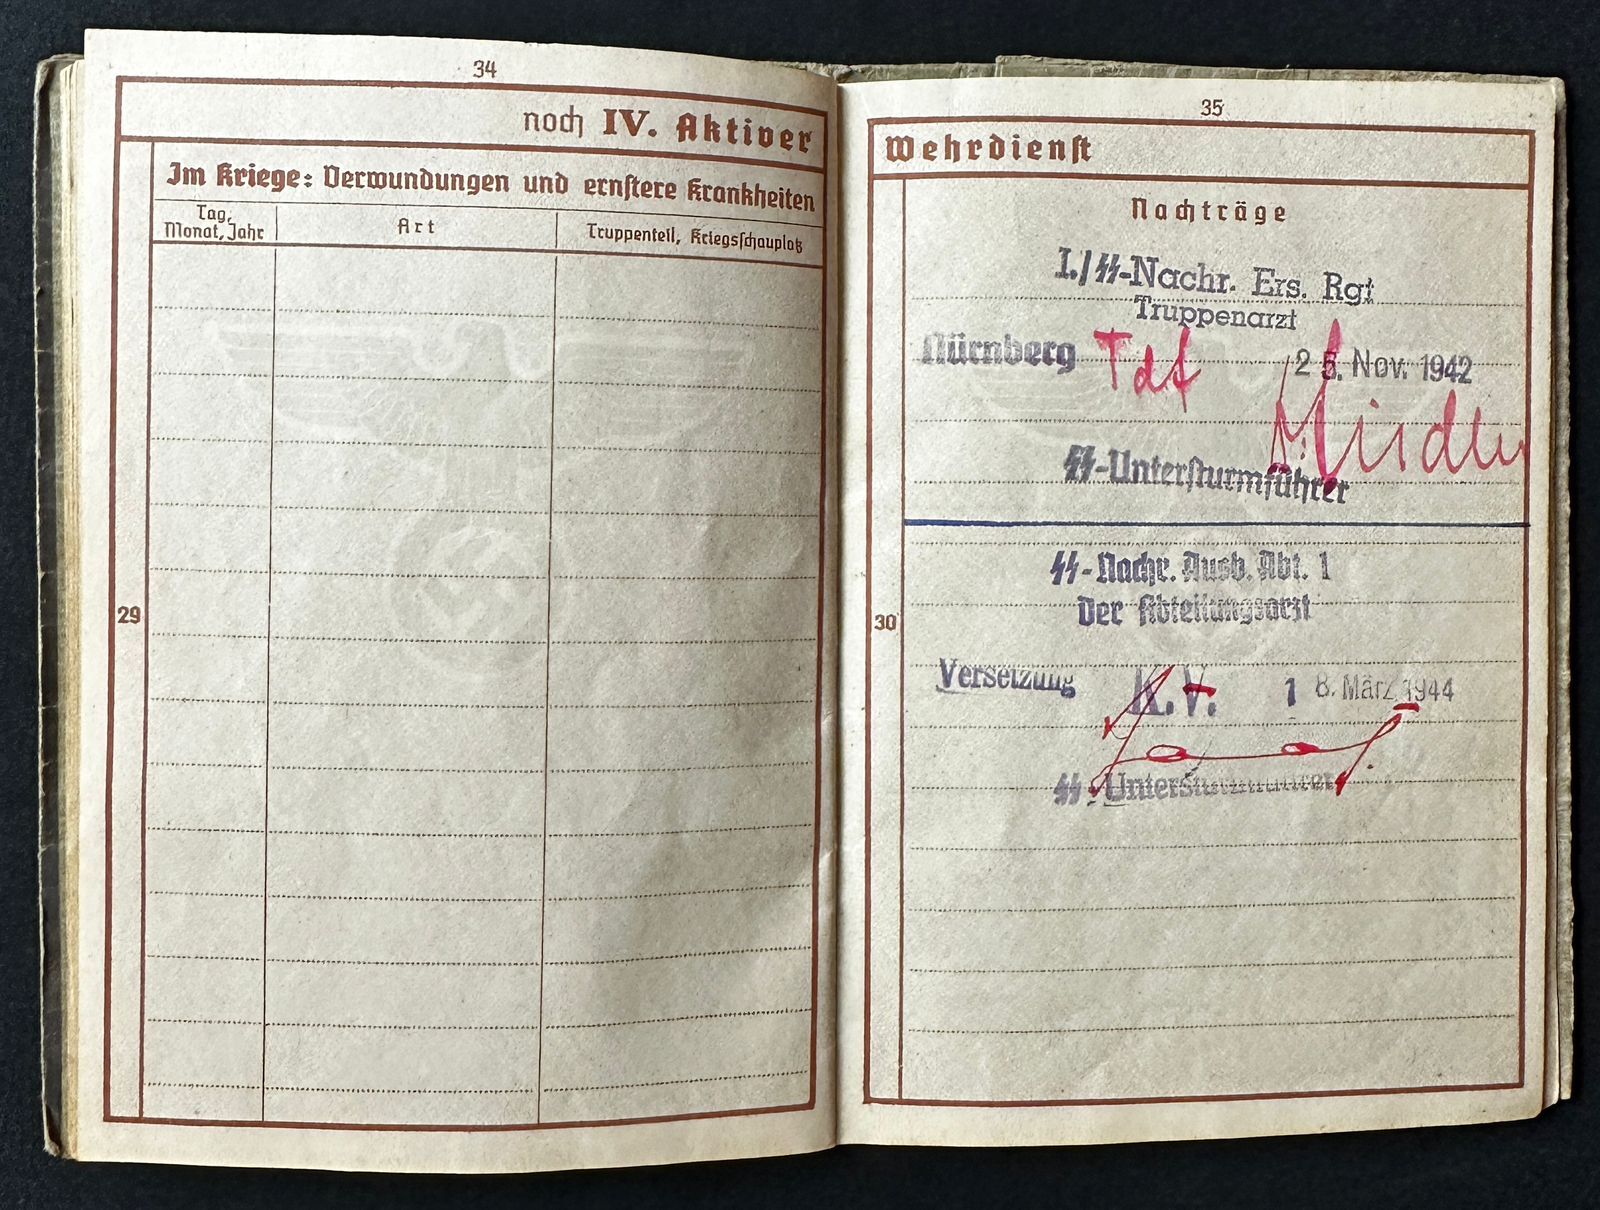 34
noch IV. Aktiver
Im Kriege: Verwundungen und ernstere Krankheiten
Tag, Monat, Jahr
Art
Truppenteil, Kriegsschauplatz
29
35
Wehrdienst
Nachträge
I./SS-Nachr. Ers. Rgt
Truppenarzt
Nürnberg Tdf 25. Nov. 1942
SS-Untersturmführer
30
SS-Nachr. Ausb. Abt. 1
Der Abteilungsarzt
Versetzung K.V. 18. März 1944
SS-Untersturmführer